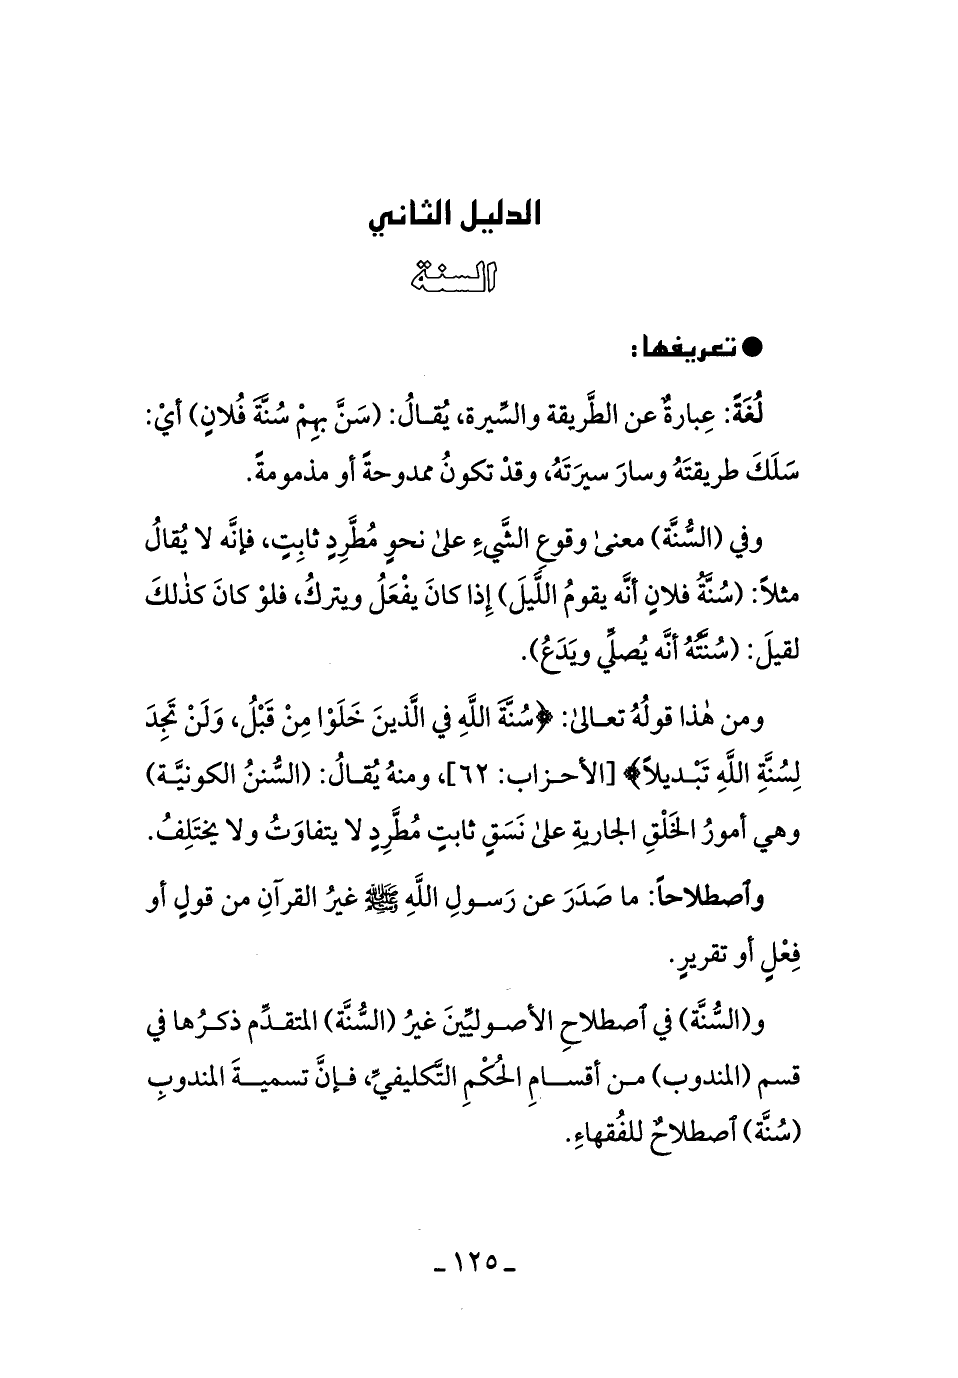 الدليل الثاني
السنة
● تعريفها:
لُغَةً: عِبارةٌ عن الطَّريقة والسِّيرة، يُقـالُ: (سَنَّ بهِمْ سُنَّةَ فُلانٍ) أيْ:
سَلَكَ طريقتَهُ وسارَ سيرَتَهُ، وقدْ تكونُ ممدوحةً أو مذمومةً.
وفي (السُّنَّة) معنىٰ وقوعِ الشَّيءِ علىٰ نحوٍ مُطَّرِدٍ ثابِتٍ، فإنَّه لا يُقالُ
مثلاً: (سُنَّةُ فلانٍ أنَّه يقومُ اللَّيلَ) إذا كانَ يفْعَلُ ويتركُ، فلوْ كانَ كذٰلكَ
لقيلَ: (سُنَّتُهُ أنَّه يُصلِّي ويَدَعُ).
ومن هٰذا قولُهُ تعـالىٰ: ﴿سُنَّةَ اللَّهِ في الَّذينَ خَلَوْا مِنْ قَبْلُ، وَلَنْ تَجِدَ
لِسُنَّةِ اللَّهِ تَبْـديلاً﴾ [الأحـزاب: ٦٢]، ومنهُ يُقـالُ: (السُّننُ الكونيَّـة)
وهي أمورُ الخَلْقِ الجاريةِ علىٰ نَسَقٍ ثابتٍ مُطَّرِدٍ لا يتفاوَتُ ولا يختَلِفُ.
وٱصطلاحاً: ما صَدَرَ عن رَسـولِ اللَّهِ ﷺ غيرُ القرآنِ من قولٍ أو
فِعْلٍ أو تقريرٍ.
و(السُّنَّة) في ٱصطلاحِ الأصـوليِّينَ غيرُ (السُّنَّة) المتقـدِّم ذكـرُها في
قسم (المندوب) مـن أقسـامِ الحُكْمِ التَّكليفيِّ، فـإنَّ تسميـةَ المندوبِ
(سُنَّة) ٱصطلاحٌ للفُقهاءِ.
ـ ١٢٥ ـ